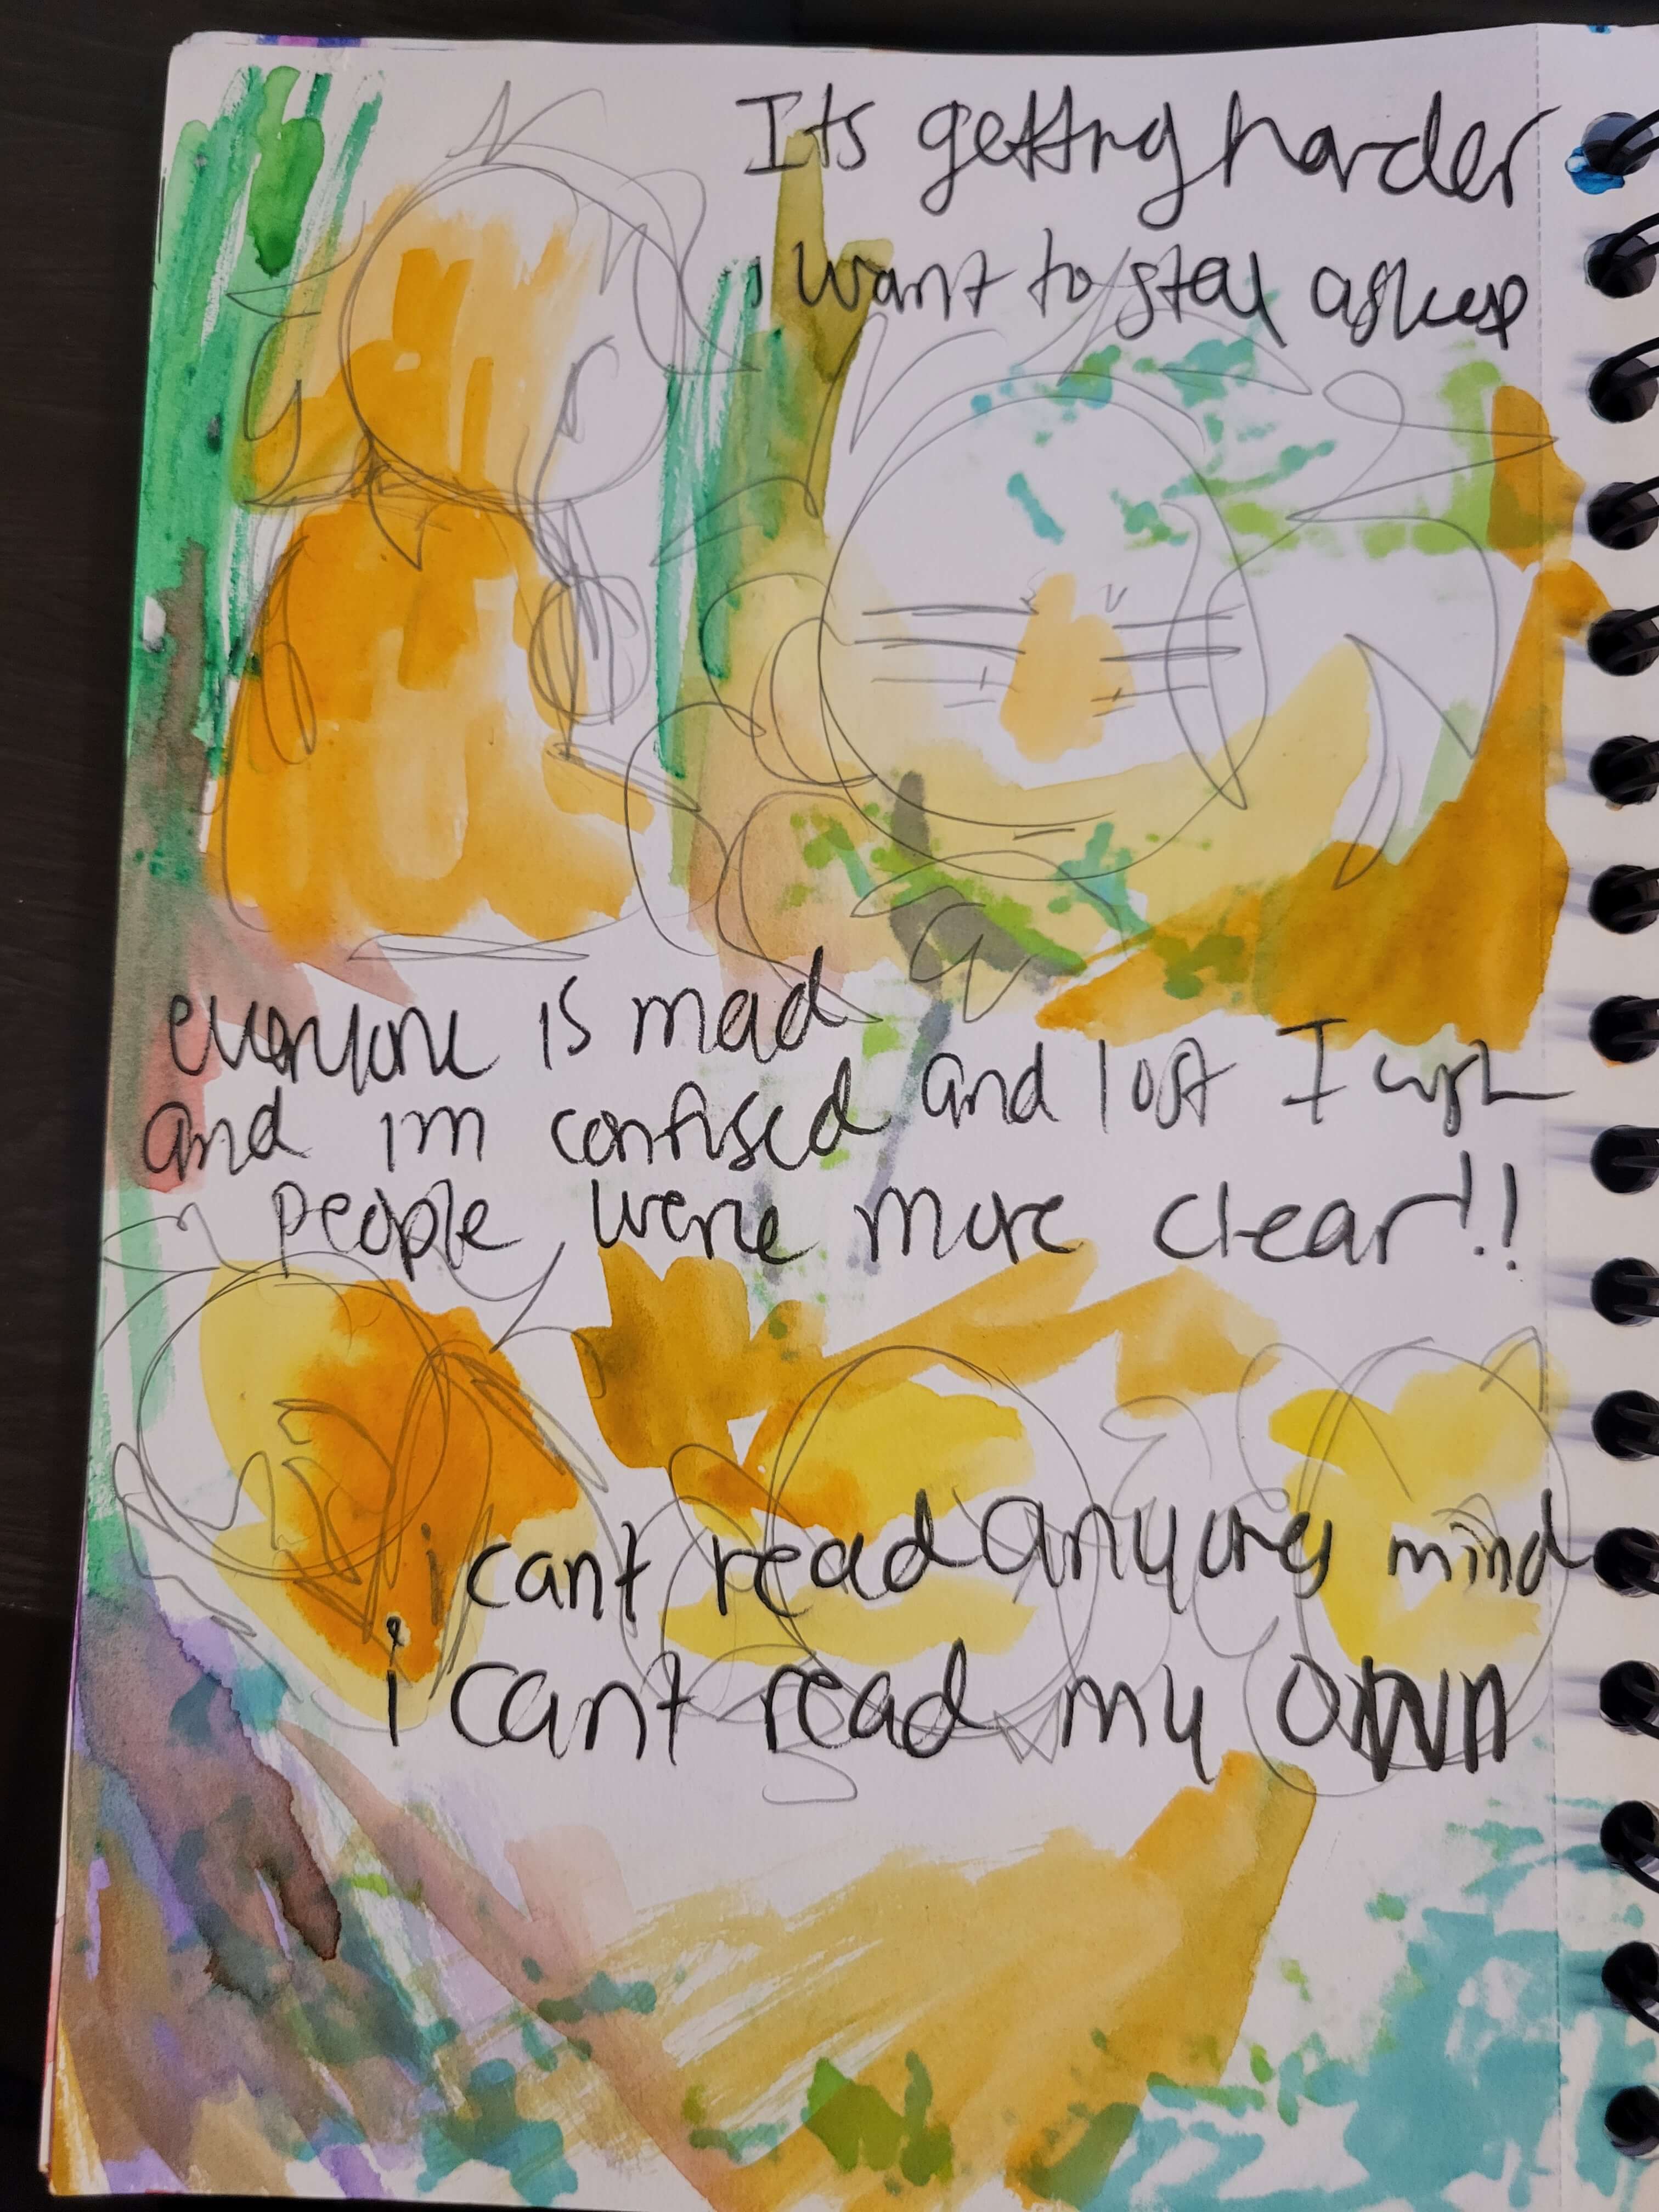 Its getting harder
i want to stay asleep
everyone is mad
and im confused and lost I wish
people were more clear!!
i cant read anyones mind
i cant read my own